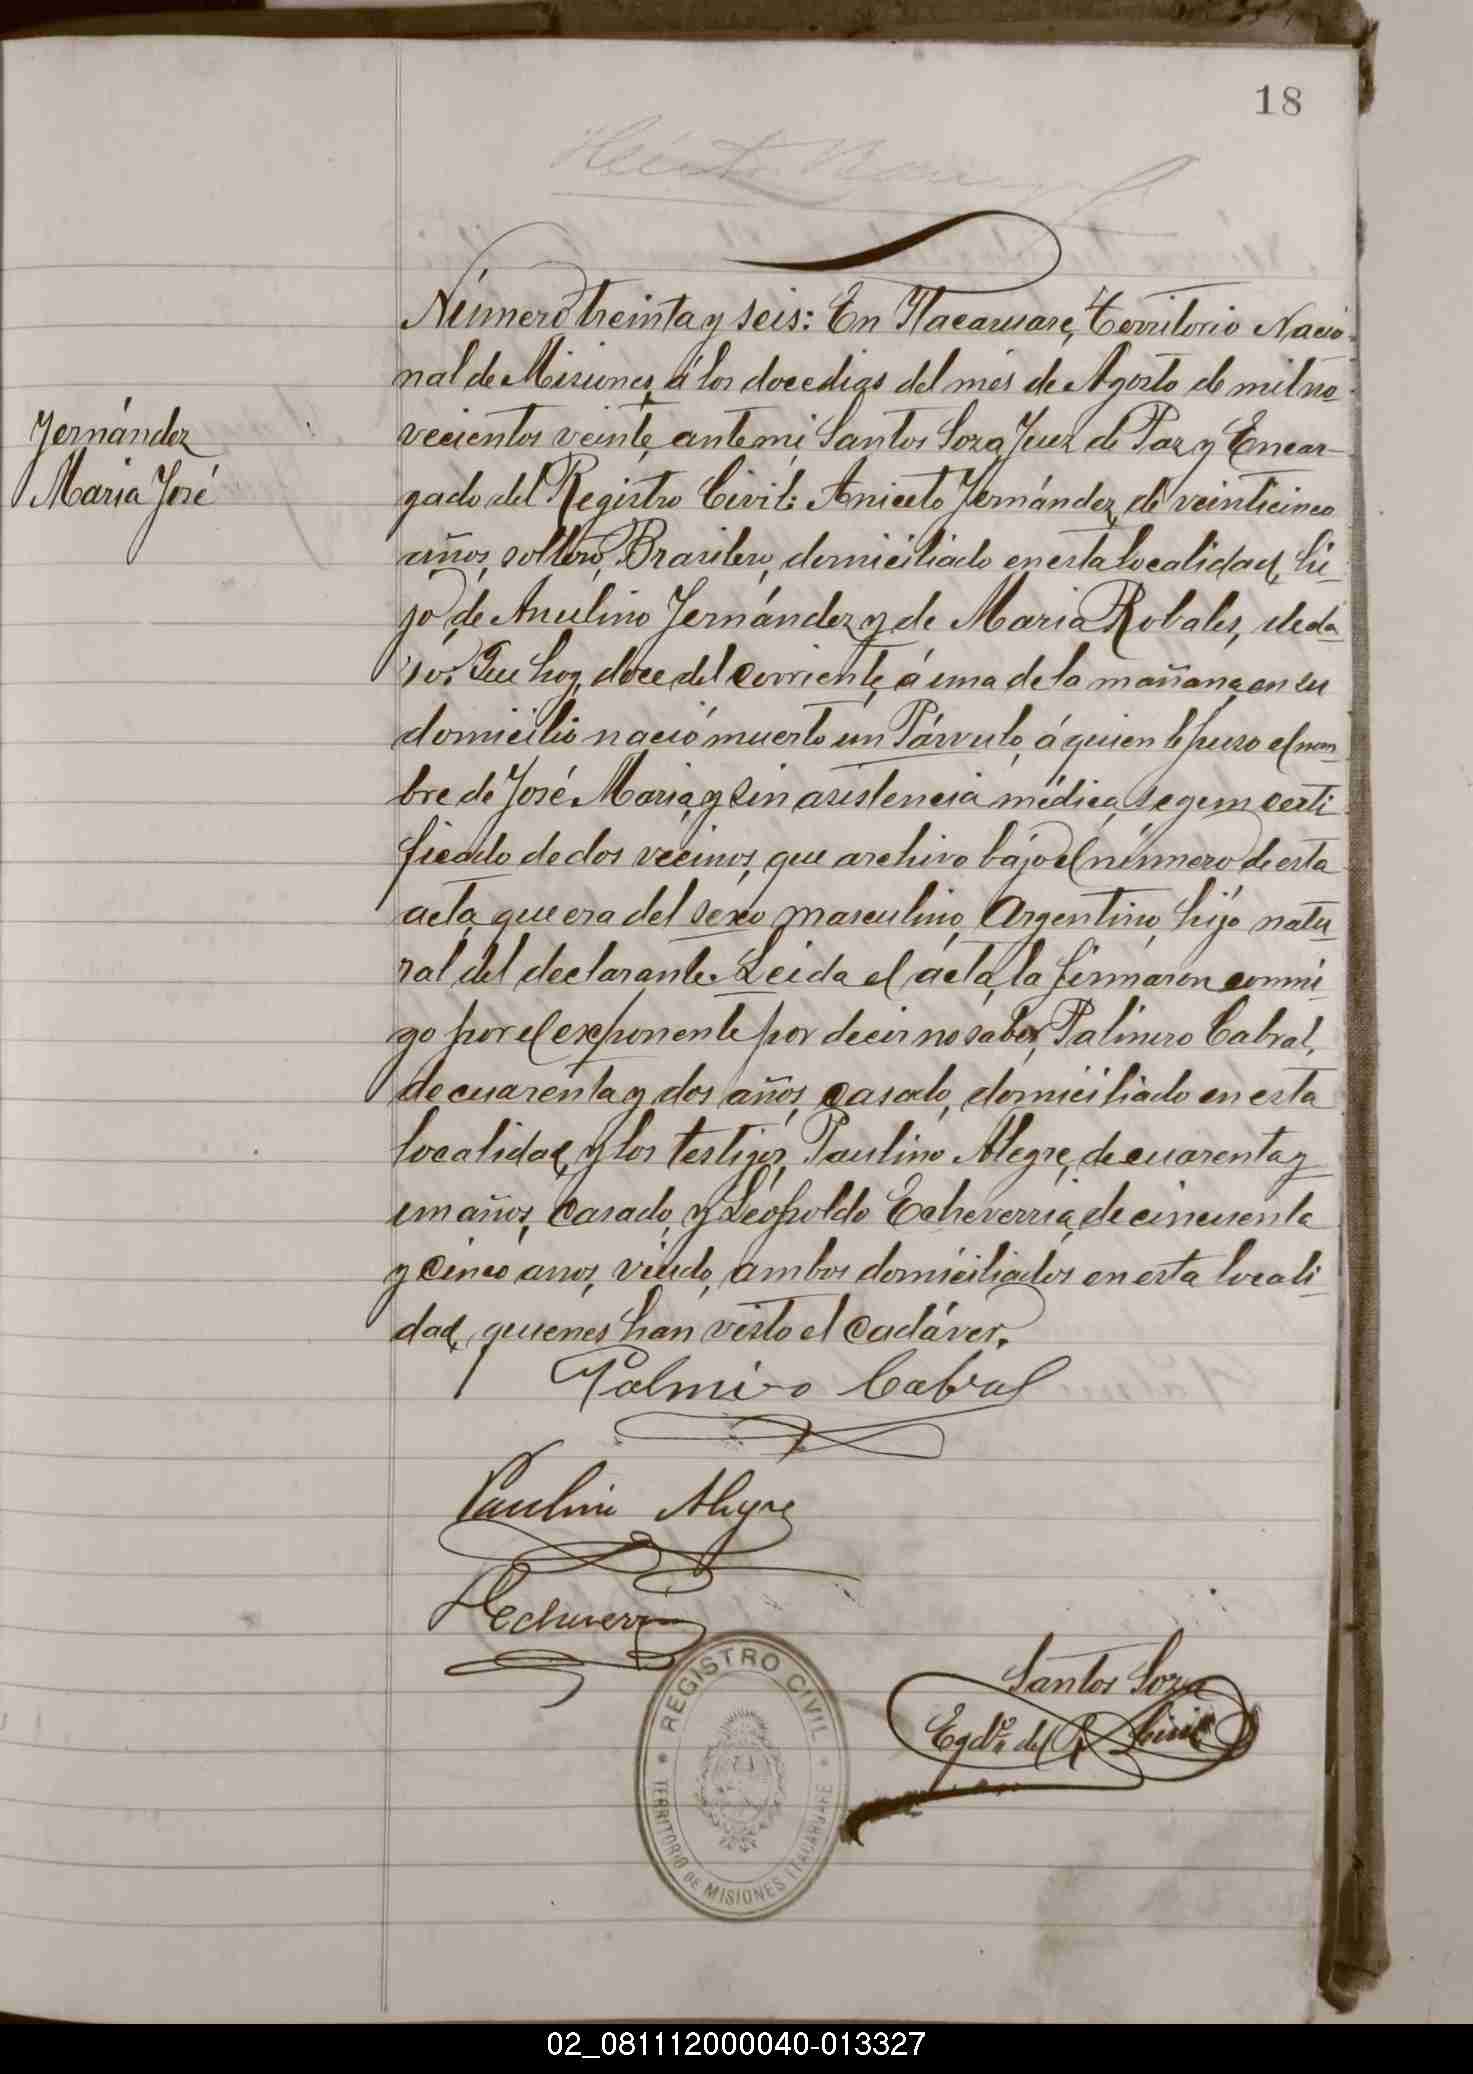 18
Número treinta y seis: En Itacaruare, Territorio Nacio-
nal de Misiones, á los doce dias del més de Agosto de mil no-
Fernández
vecientos veinte, ante mi, Santos Soza, Juez de Paz y Encar-
Maria José
gado del Registro Civil: Aniceto Fernández, de veinticinco
años, soltero, Brasilero, domiciliado en esta localidad, hi-
jo, de Anulino Fernández y de Maria Robales, decla
ró: Que hoy, doce del corriente, á una de la mañana, en su
domicilio nació muerto un Párvulo, á quien le puso el nom-
bre de José Maria, y sin asistencia médica, segun certi-
ficado de dos vecinos, que archivo bajo el número de esta
acta, que era del sexo masculino, Argentino, hijo natu-
ral del declarante. Leida el ácta, la firmaron conmi-
go por el exponente por decir no saber, Palmiro Cabral,
de cuarenta y dos años, casado, domiciliado en esta
localidad, y los testigos, Paulino Alegre, de cuarenta y
un años, casado, y Léopoldo Echeverria, de cincuenta
y cinco anos, viudo, ambos domiciliados en esta locali-
dad, quienes han visto el cadáver.
Palmiro Cabral
Paulino Alegre
LEcheverria
Santos Soza
Egdo. del R. Civil
REGISTRO CIVIL
TERRITORIO DE MISIONES ITACARUARE
02_081112000040-013327